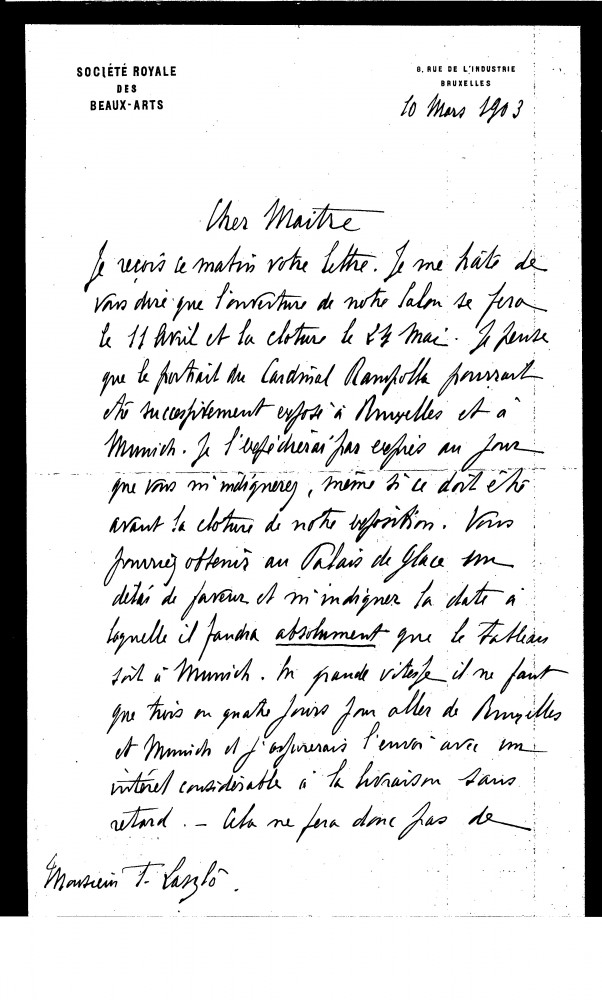 SOCIÉTÉ ROYALE
DES
BEAUX-ARTS
6, RUE DE L'INDUSTRIE
BRUXELLES
10 Mars 1903
Cher Maitre
Je reçois ce matin votre lettre. Je me hâte de
vous dire que l'ouverture de notre Salon se fera
le 11 Avril et la cloture le 24 Mai. Je pense
que le portrait du Cardinal Rampolla pourrait
etre successivement exposé à Bruxelles et à
Munich. Je l'expédierai par exprès au jour
que vous m'indiquerez, même si ce doit être
avant la cloture de notre exposition. Vous
pourriez obtenir au Palais de Glace un
délai de faveur et m'indiquer la date à
laquelle il faudra absolument que le tableau
soit à Munich. En grande vitesse il ne faut
que trois ou quatre jours pour aller de Bruxelles
et Munich et j'assurerais l'envoi avec un
intérêt considérable à la livraison sans
retard. — Cela ne fera donc pas de
Monsieur F. Laszló.